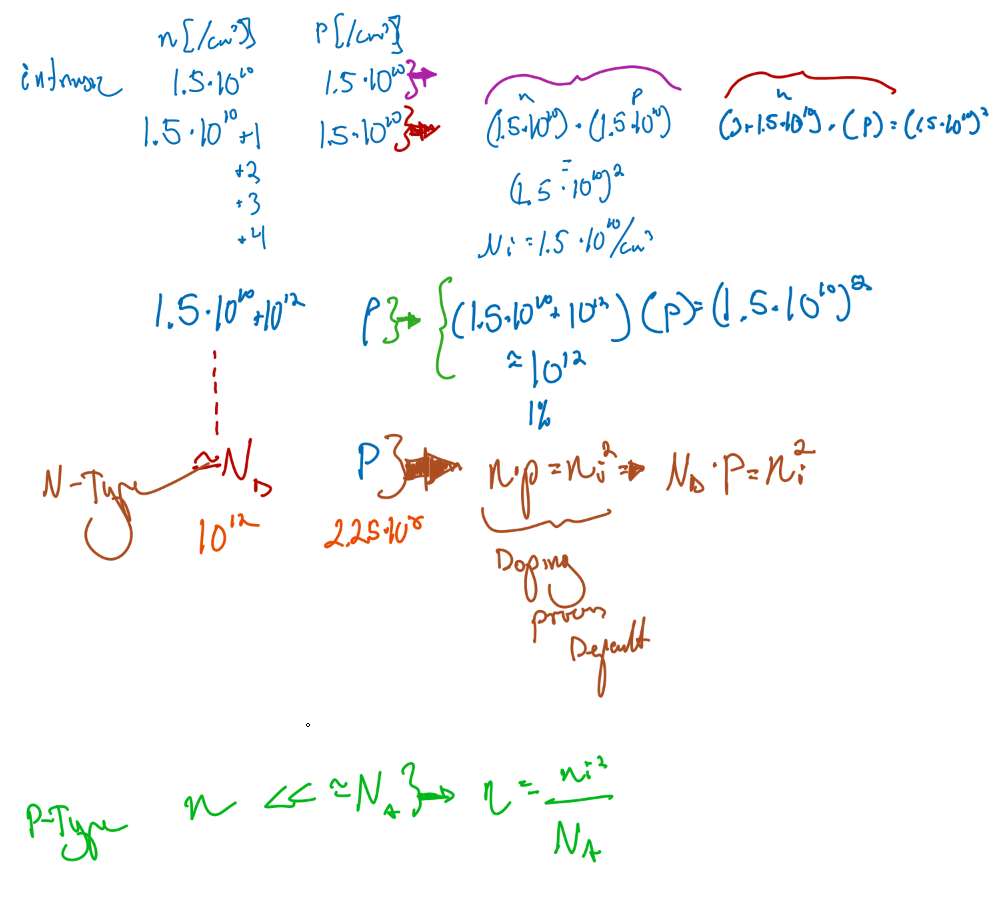 n [/cm³] p [/cm³]
1.5·10¹⁰ 1.5·10¹⁰
1.5·10¹⁰+1 1.5·10¹⁰
n p
(1.5·10¹⁰)·(1.5·10¹⁰)
n
(3+1.5·10¹⁰)·(p)=(1.5·10¹⁰)²
+2
+3
+4
=
(1.5·10¹⁰)²
Ni=1.5·10¹⁰/cm³
1.5·10¹⁰+10¹² p (1.5·10¹⁰+10¹²)(p)=(1.5·10¹⁰)²
≈10¹²
1%
N-Type ≈N_D P n·p=n_i² → N_D·P=n_i²
10¹² 2.25·10⁸
Doping
process
Default
P-Type n << ≈N_A → n = ni²/N_A